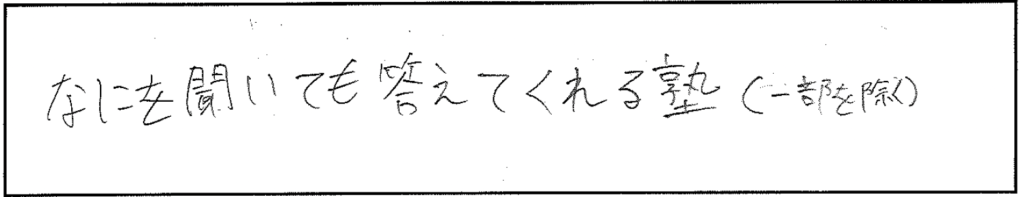 なにを聞いても答えてくれる塾（一部を除く）